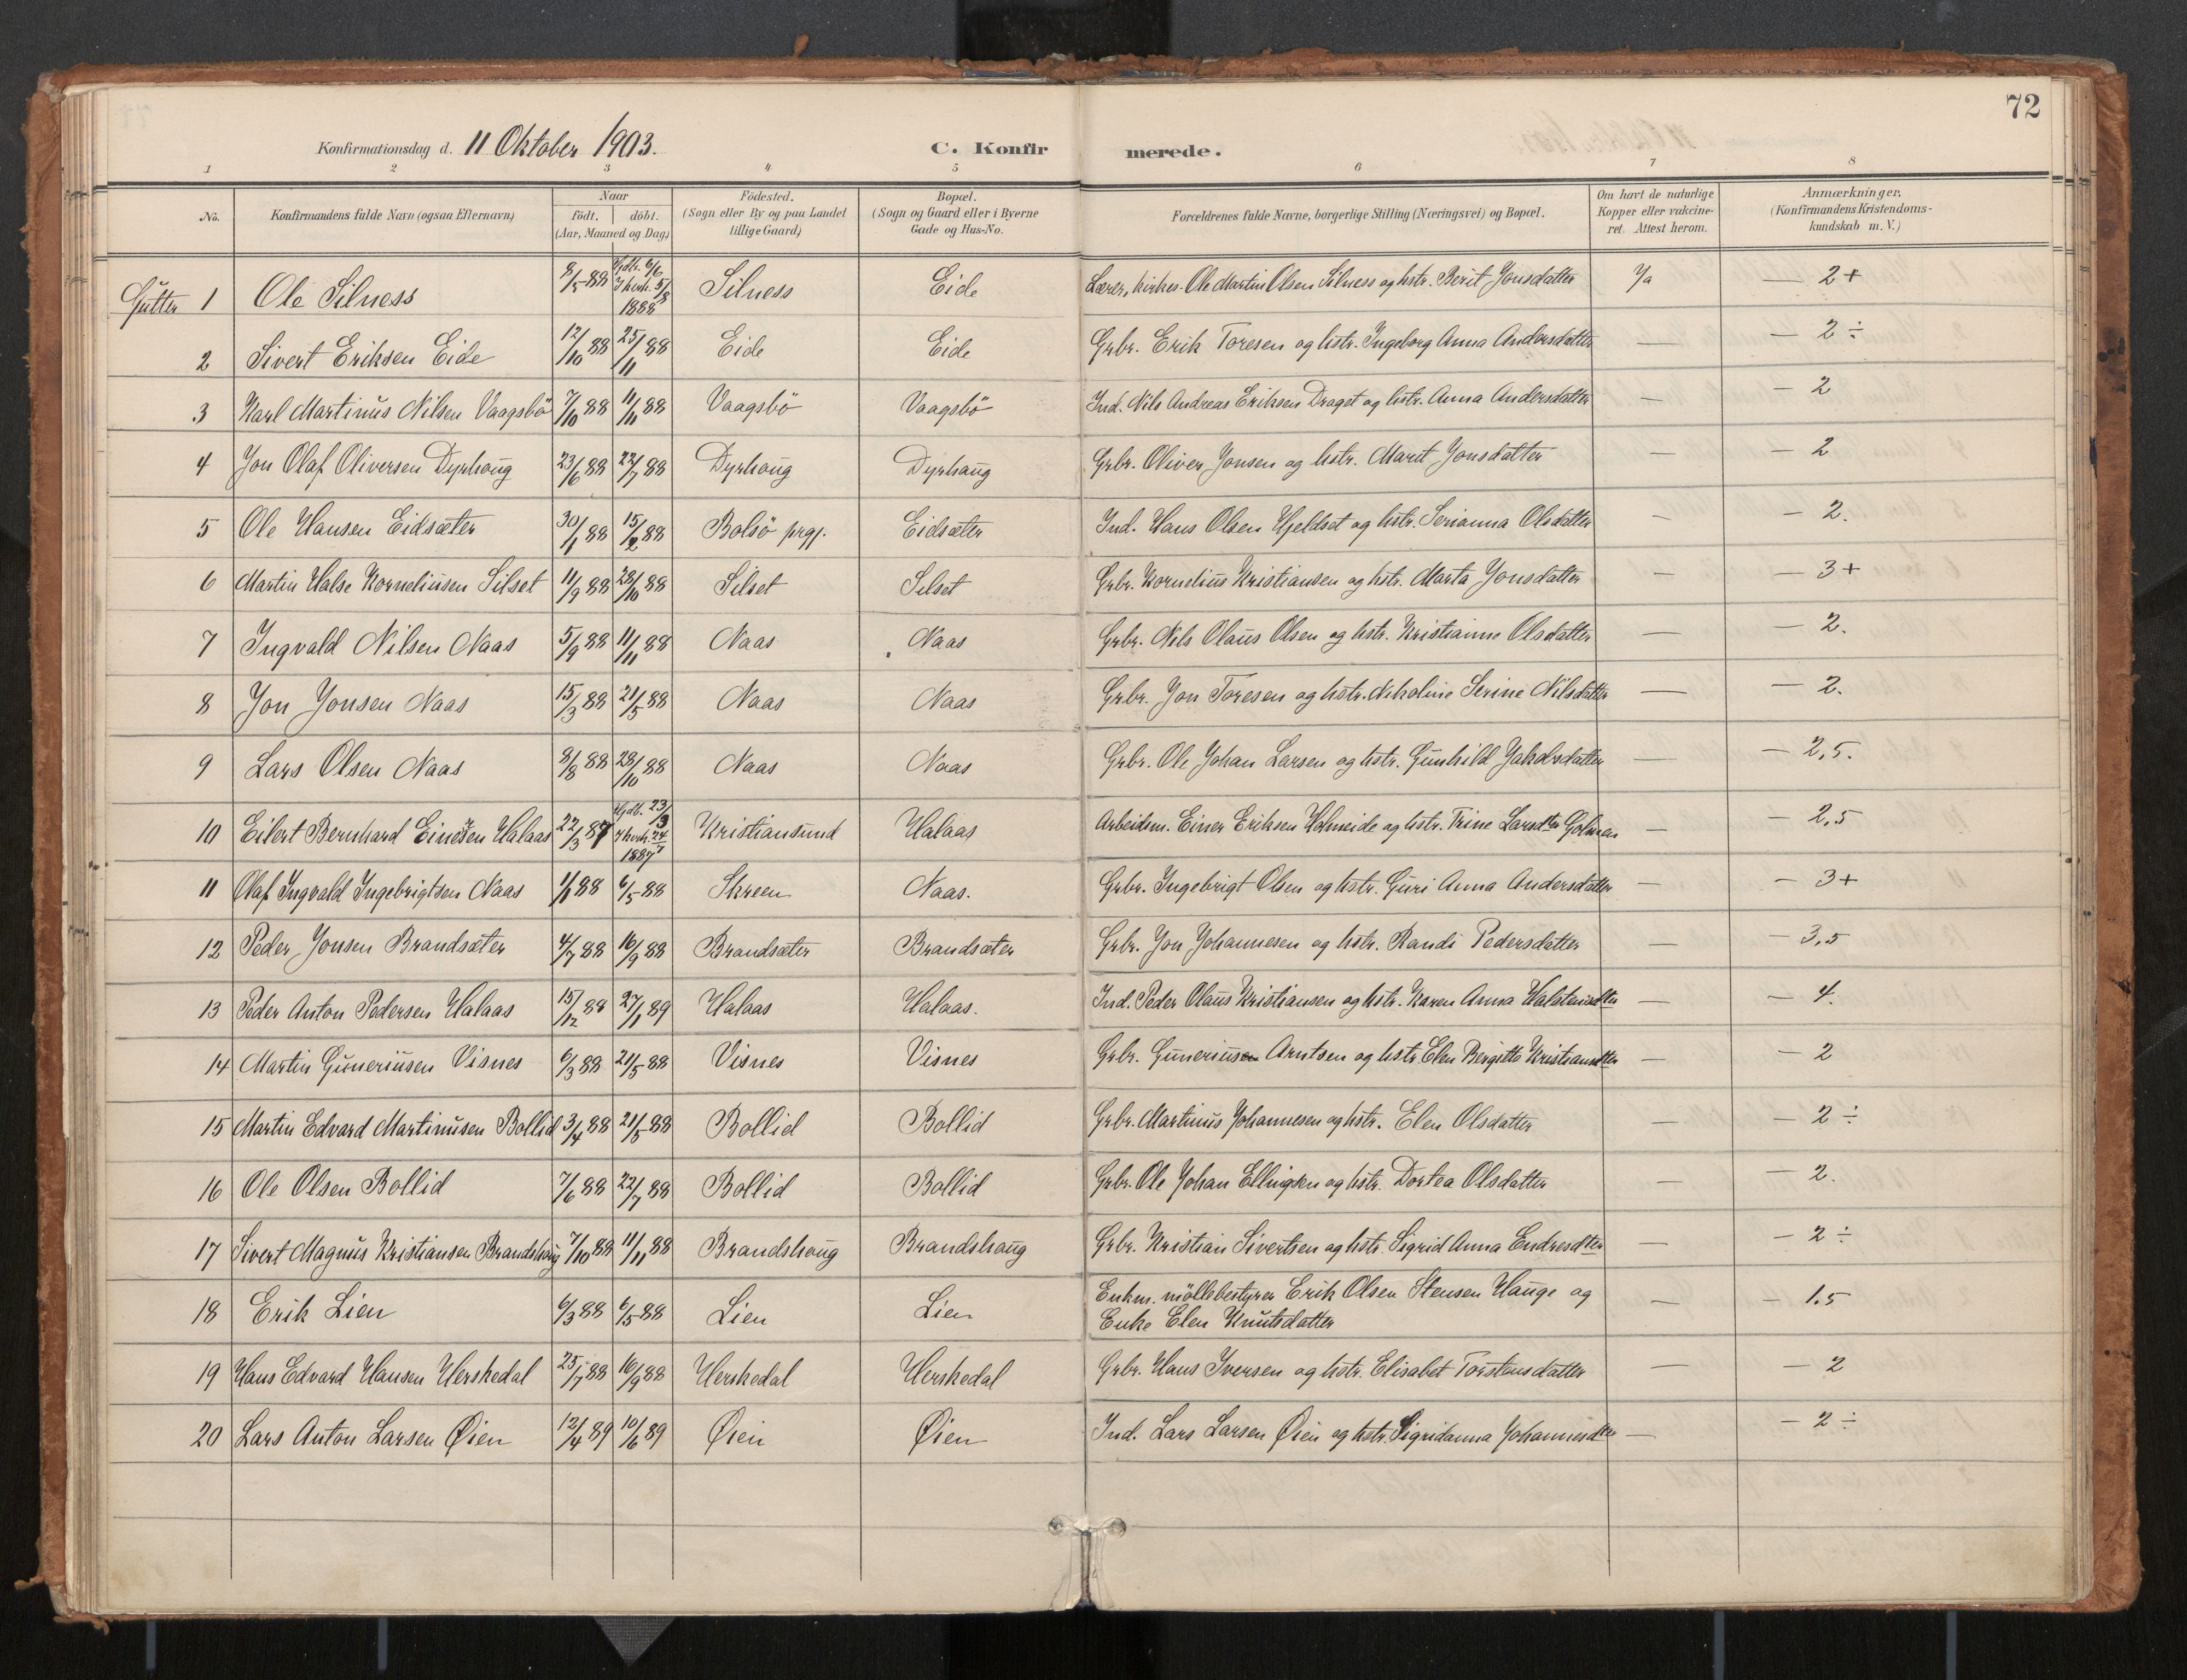 72
Konfirmationsdag d. 11 Oktober 1903. C. Konfir merede.
1 2 3 4 5 6 7 8
No. Konfirmandens fulde Navn (ogsaa Efternavn) Naar Födt. döbt. (Aar, Maaned og Dag) Födested. (Sogn eller By og paa Landet tillige Gaard) Bopæl. (Sogn og Gaard eller i Byerne Gade og Hus-No. Forældrenes fulde Navne, borgerlige Stilling (Næringsvei) og Bopæl. Om havt de naturlige Kopper eller vakcineret. Attest herom. Anmærkninger. (Konfirmandens Kristendomskundskab m. V.)
Gutter 1 Ole Silness 8/5 88 Hjdb. 6/6 I kirk. 5/8 1888 Silness Eide Lærer, kirkes. Ole Martin Olsen Silness og hstr. Berit Jonsdatter Ja — 2+
2 Sivert Eriksen Eide 12/10 88 25/11 88 Eide Eide Grbr. Erik Toresen og hstr. Ingeborg Anna Andersdatter — — 2 ÷
3 Karl Martinus Nilsen Vaagsbö 7/10 88 11/11 88 Vaagsbö Vaagsbö Ind. Nils Andreas Eriksen Draget og hstr. Anna Andersdatter — — 2
4 Jon Olaf Oliversen Dyrhoug 23/6 88 22/7 88 Dyrhoug Dyrhaug Grbr. Oliver Jonsen og hstr. Marit Jonsdatter — — 2
5 Ole Hansen Eidsæter 30/1 88 15/2 88 Bolsö prgj. Eidsæter Ind. Hans Olsen Hjeldset og hstr. Serianna Olsdatter — — 2.
6 Martin Halse Korneliusen Silset 11/9 88 28/10 88 Silset Silset Grbr. Kornelius Kristiansen og hstr. Marta Jonsdatter — — 3+
7 Ingvald Nilsen Naas 5/9 88 11/11 88 Naas Naas Grbr. Nils Olaus Olsen og hstr. Kristianne Olsdatter — — 2.
8 Jon Jonsen Naas 15/3 88 21/5 88 Naas Naas Grbr. Jon Toresen og hstr. Nikoline Serine Nilsdatter — — 2.
9 Lars Olsen Naas 8/8 88 28/10 88 Naas Naas Grbr. Ole Johan Larsen og hstr. Gunhild Jakobsdatter — — 2,5.
10 Eilert Bernhard Einersen Halaas 22/3 87 Hjdb. 23/3 I kirk. 24/7 1887 Kristiansund Halaas Arbeidsm. Einer Eriksen Holmeide og hstr. Trine Larsdtr — — 2,5
11 Olaf Ingvald Ingebrigtsen Naas 1/1 88 6/5 88 Skreen Naas. Grbr. Ingebrigt Olsen og hstr. Guri Anna Andersdatter — — 3+
12 Peder Jonsen Brandsæter 4/7 88 16/9 88 Brandsæter Brandsæter Grbr. Jon Johannesen og hstr. Randi Pedersdatter — — 3,5
13 Peder Anton Pedersen Halaas 15/12 88 27/1 89 Halaas Halaas. Ind. Peder Olaus Kristiansen og hstr. Karen Anna Halstensdtr — — 4.
14 Martin Guneriusen Visnes 6/3 88 21/5 88 Visnes Visnes Grbr. Gunerius Arntsen og hstr Elen Bergitte Kristiansdtr — — 2
15 Martin Edvard Martinusen Bollid 3/4 88 21/5 88 Bollid Bollid Grbr. Martinus Johannesen og hstr. Elen Olsdatter — — 2 ÷
16 Ole Olsen Bollid 7/6 88 22/7 88 Bollid Bollid Grbr. Ole Johan Ellingsen og hstr. Dortea Olsdatter — — 2.
17 Sivert Magnus Kristiansen Brandshoug 7/10 88 11/11 88 Brandshoug Brandshaug Grbr. Kristian Sivertsen og hstr. Sigrid Anna Endresdtr — — 2 ÷
18 Erik Lien 6/3 88 6/5 88 Lien Lien Enkm. möllebestyrer Erik Olsen Stensen Hauge og
Enke Elen Knutsdatter — — 1.5
19 Hans Edvard Hansen Herskedal 25/7 88 16/9 88 Herskedal Herskedal Grbr. Hans Iversen og hstr. Elisabet Torstensdatter — — 2
20 Lars Anton Larsen Øien 12/4 89 10/6 89 Øien Øien Ind. Lars Larsen Øien og hstr. Sigridanna Johannesdtr — — 2 ÷